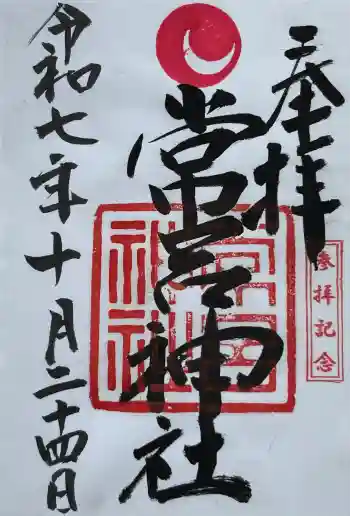 奉拝
參拝記念
常宮神社
常宮神社
令和七年十月二十四日